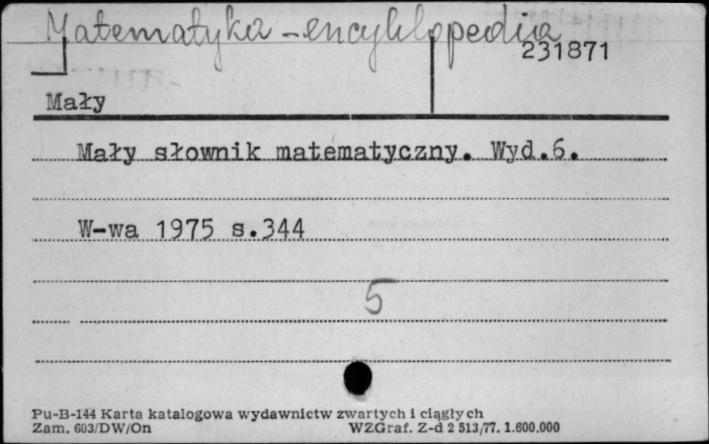 Matematyka - encyklopedia
231871
Mały
Mały słownik matematyczny. Wyd.6.
W-wa 1975 s.344
5
Pu-B-144 Karta katalogowa wydawnictw zwartych i ciągłych
Zam. 603/DW/On WZGraf. Z-d 2 513/77. 1.600.000